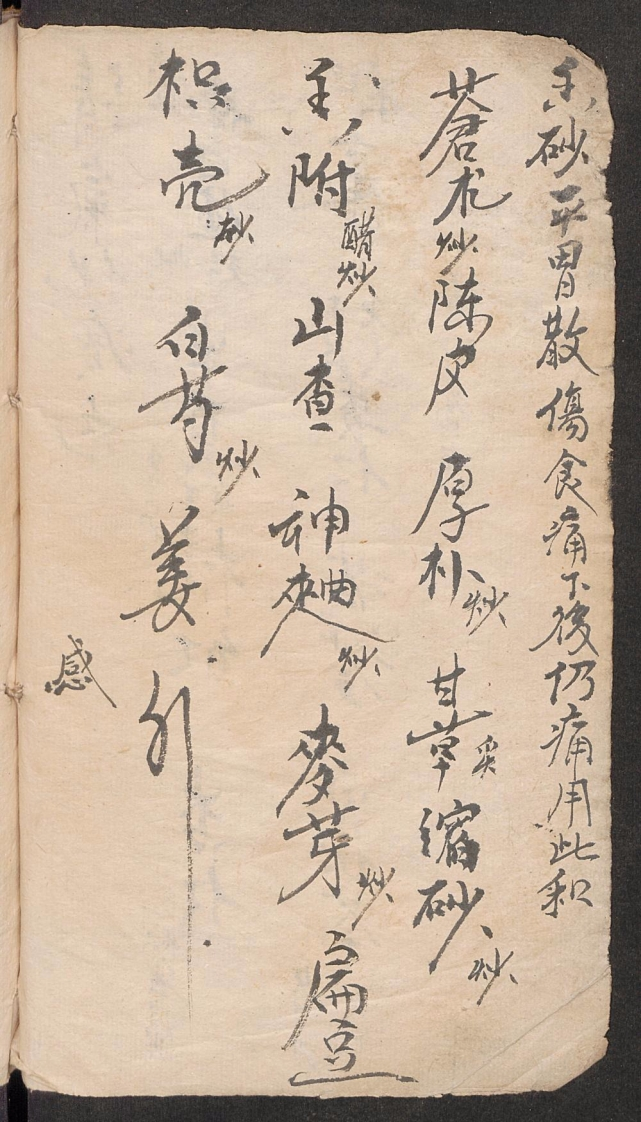 香砂平胃散傷食痛下後仍痛用此和
蒼朮炒陳皮 厚朴炒 甘草炙縮砂炒
香附醋炒山查 神麯炒 麥芽炒 扁豆
枳壳炒 白芍炒 姜引
感